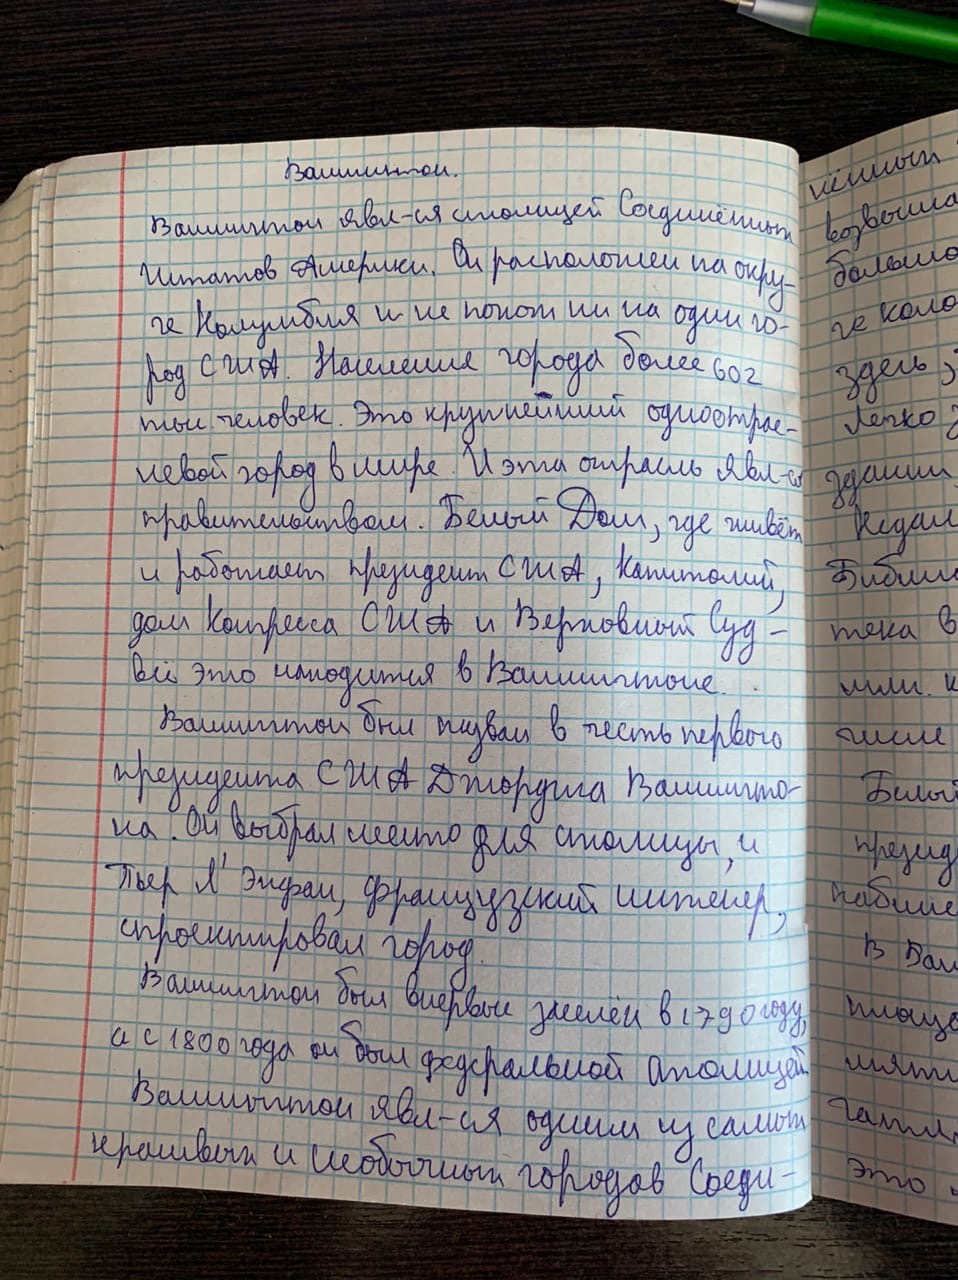 Вашингтон.
Вашингтон явл-ся столицей Соединённых
Штатов Америки. Он расположен на окру-
ге Колумбия и не похож ни на один го-
род США. Население города более 602
тыс. человек. Это крупнейший одноотрас-
левой город в мире. И эта отрасль явл-ся
правительством. Белый Дом, где живёт
и работает президент США, Капитолий,
дом Конгресса США и Верховный Суд -
всё это находится в Вашингтоне.
Вашингтон был назван в честь первого
президента США Джорджа Вашингто-
на. Он выбрал место для столицы, и
Пьер Л' Энфан, французский инженер,
спроектировал город.
Вашингтон был впервые заселён в 1790 году,
а с 1800 года он был федеральной столицей
Вашингтон явл-ся одним из самых
красивых и необычных городов Соеди-
нённых
возвыша
большо
ге коло
здесь
Легко
зданий
Недал
Библио
тека в
млн. к
числе
Белый
презид
В Ваш
площа
мятн
это